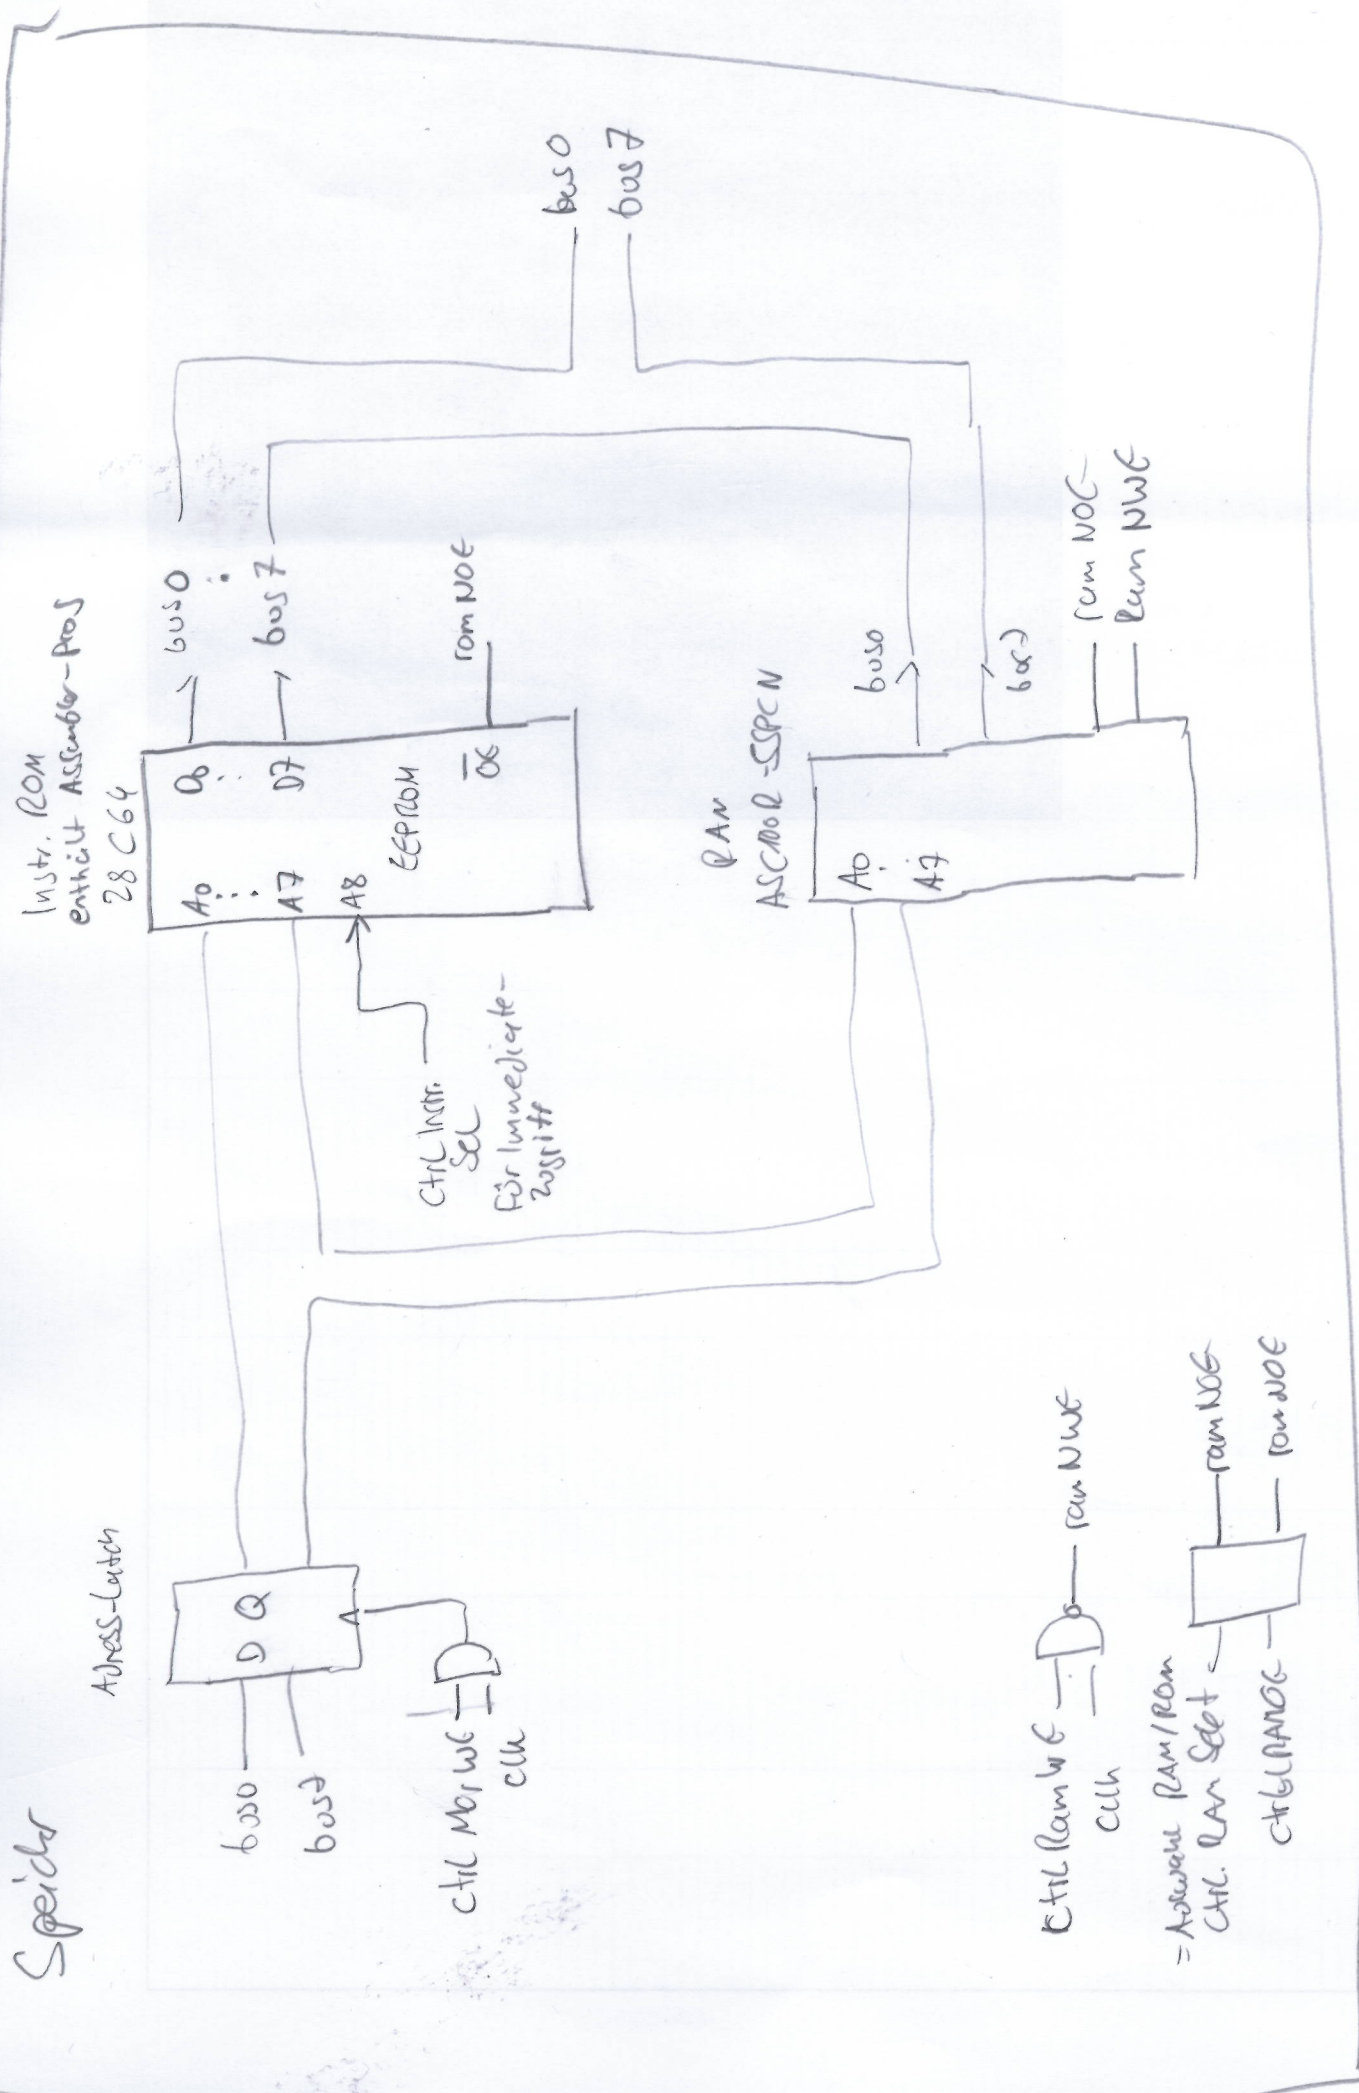 Speicher
Adress-Latch
bus0
bus7
D Q
Ctrl Mar WE
Clk
Instr. ROM
enthält Assembler-Prog
28C64
A0
:
A7
A8
D0
:
D7
OE
EEPROM
bus0
:
bus7
romNOE
Ctrl Instr.
Sel
Für Immediate-
Zugriff
bus0
bus7
RAM
A0
:
A7
bus0
bus7
ram NOE
Ram NWE
Ctrl Ram WE
Clk
ram NWE
= Auswahl RAM/ROM
Ctrl. RAM Select
Ctrl RAMOE
ramNOE
romNOE